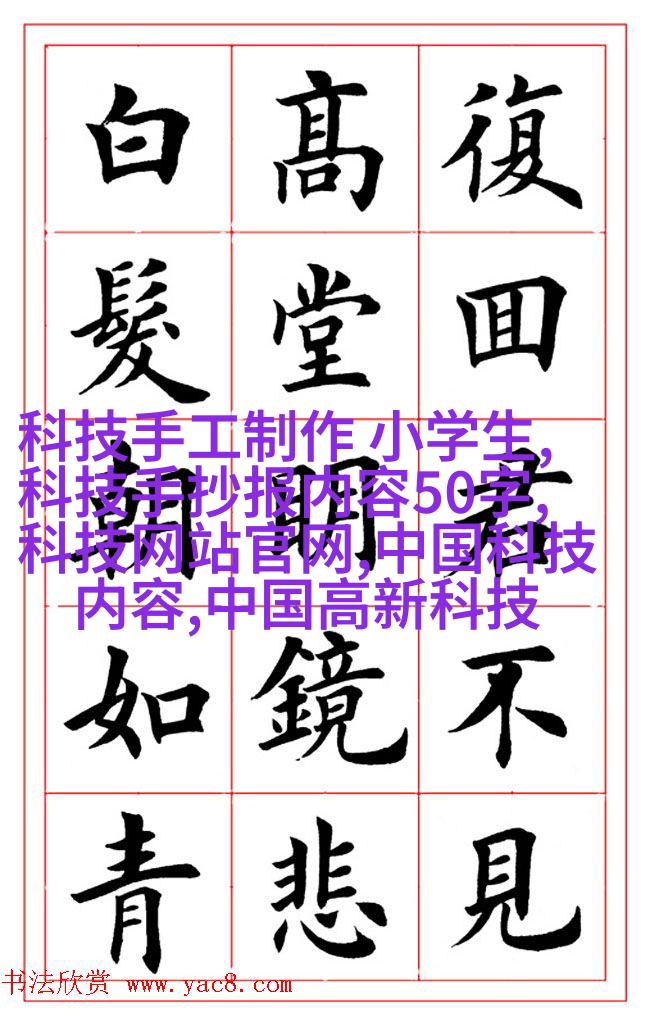 復囬君不見
髙堂明鏡悲
白髮朝如青
科技手工制作 小学生,
科技手抄报内容50字,
科技网站官网,中国科技
内容,中国高新科技
书法欣赏 www.yac8.com